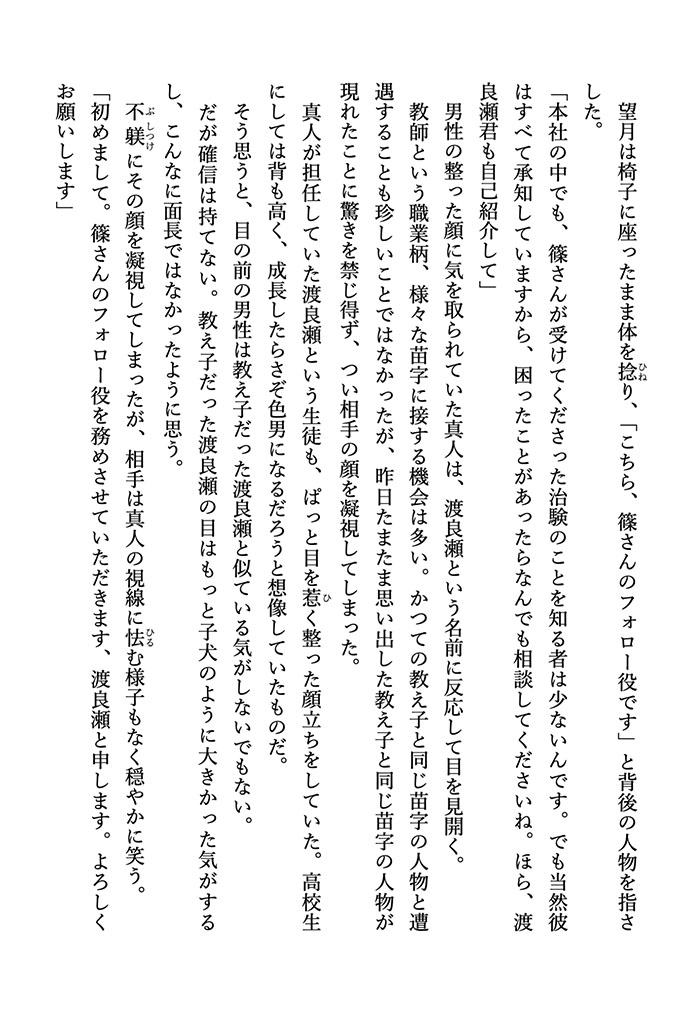 望月は椅子に座ったまま体を捻り、「こちら、篠さんのフォロー役です」と背後の人物を指さ
した。
「本社の中でも、篠さんが受けてくださった治験のことを知る者は少ないんです。でも当然彼
はすべて承知していますから、困ったことがあったらなんでも相談してくださいね。ほら、渡
良瀬君も自己紹介して」
　男性の整った顔に気を取られていた真人は、渡良瀬という名前に反応して目を見開く。
　教師という職業柄、様々な苗字に接する機会は多い。かつての教え子と同じ苗字の人物と遭
遇することも珍しいことではなかったが、昨日たまたま思い出した教え子と同じ苗字の人物が
現れたことに驚きを禁じ得ず、つい相手の顔を凝視してしまった。
　真人が担任していた渡良瀬という生徒も、ぱっと目を惹く整った顔立ちをしていた。高校生
にしては背も高く、成長したらさぞ色男になるだろうと想像していたものだ。
　そう思うと、目の前の男性は教え子だった渡良瀬と似ている気がしないでもない。
　だが確信は持てない。教え子だった渡良瀬の目はもっと子犬のように大きかった気がする
し、こんなに面長ではなかったように思う。
　不躾にその顔を凝視してしまったが、相手は真人の視線に怯む様子もなく穏やかに笑う。
「初めまして。篠さんのフォロー役を務めさせていただきます、渡良瀬と申します。よろしく
お願いします」